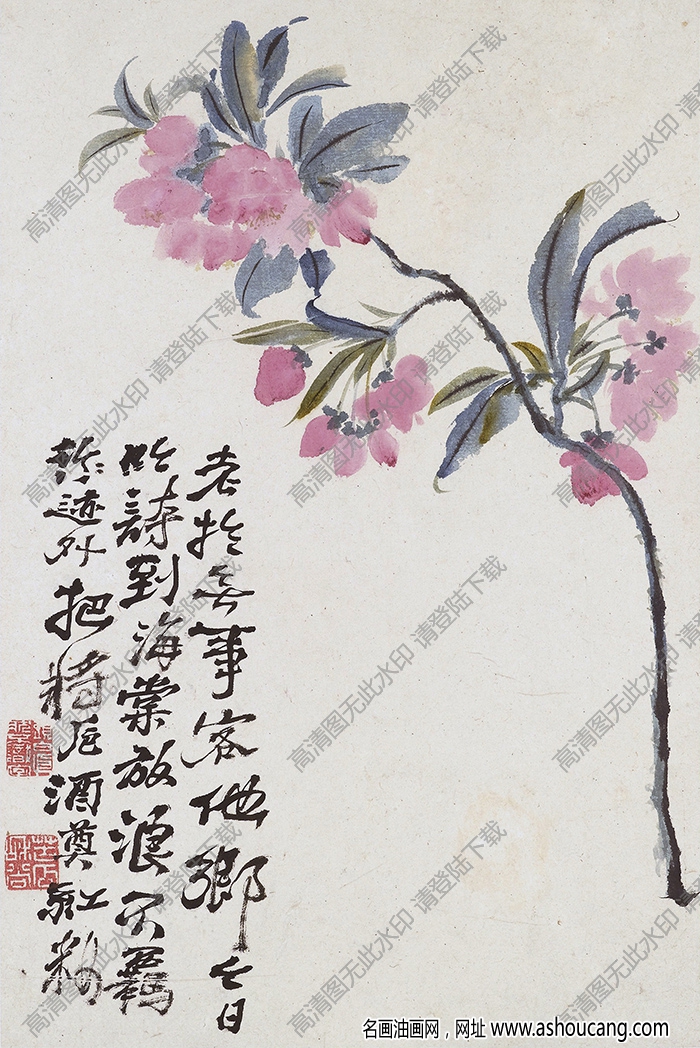 老於無事客他鄉今日
吟詩到海棠放浪不羈
形迹外把將卮酒奠紅粉
高清图无此水印 请登陆下载
名画油画网，网址 www.ashoucang.com